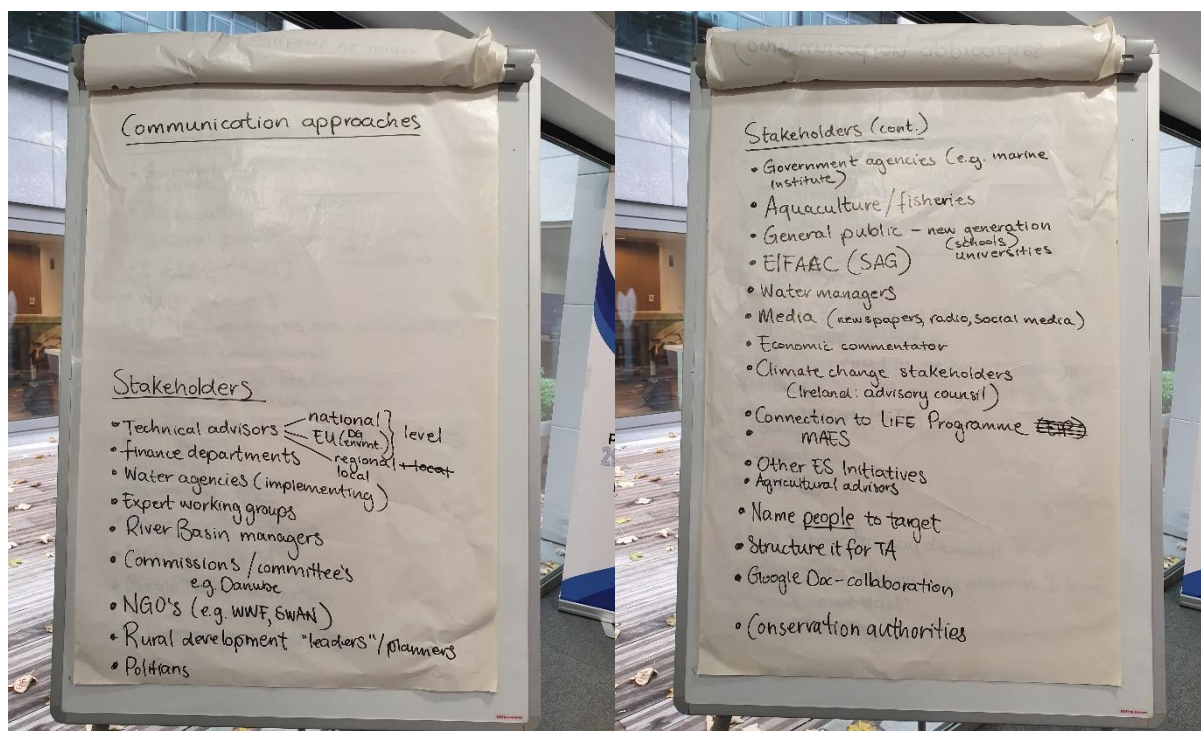 Communication approaches
Stakeholders
• Technical advisors national
EU (DG envmt.) level
regional + local
local
• finance departments
• Water agencies (implementing)
• Expert working groups
• River Basin managers
• Commissions/committee's
e.g. Danube
• NGO's (e.g. WWF, SWAN)
• Rural development "leaders"/planners
• Politians
Communication approaches
Stakeholders (cont.)
• Government agencies (e.g. marine
institute)
• Aquaculture/fisheries
• General public - new generation
(schools)
universities
• EIFAAC (SAG)
• Water managers
• Media (newspapers, radio, social media)
• Economic commentator
• Climate change stakeholders
(Ireland: advisory counsil)
• Connection to LiFE Programme
• MAES
• Other ES Initiatives
• Agricultural advisors
• Name people to target
• Structure it for TA
• Google Doc-collaboration
• Conservation authorities